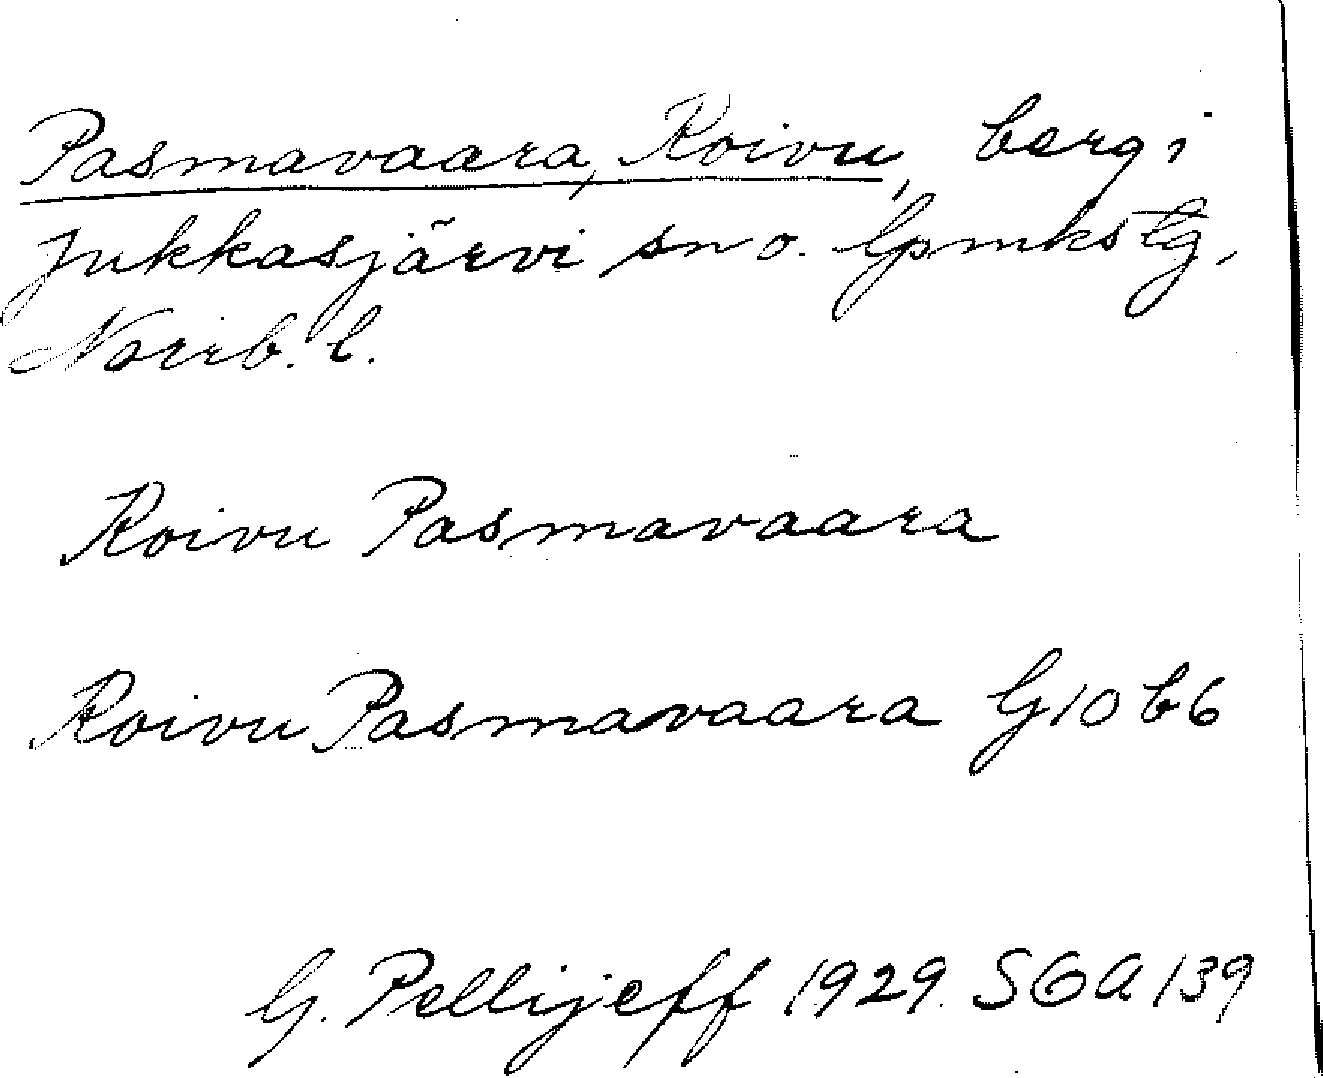 Pasmavaara, Koivu, berg i
Jukkasjärvi sn o. lpmkstg,
Norrb. l.
Koivu Pasmavaara
Koivu Pasmavaara G10 b6
G. Pellijeff 1929. SGA 139